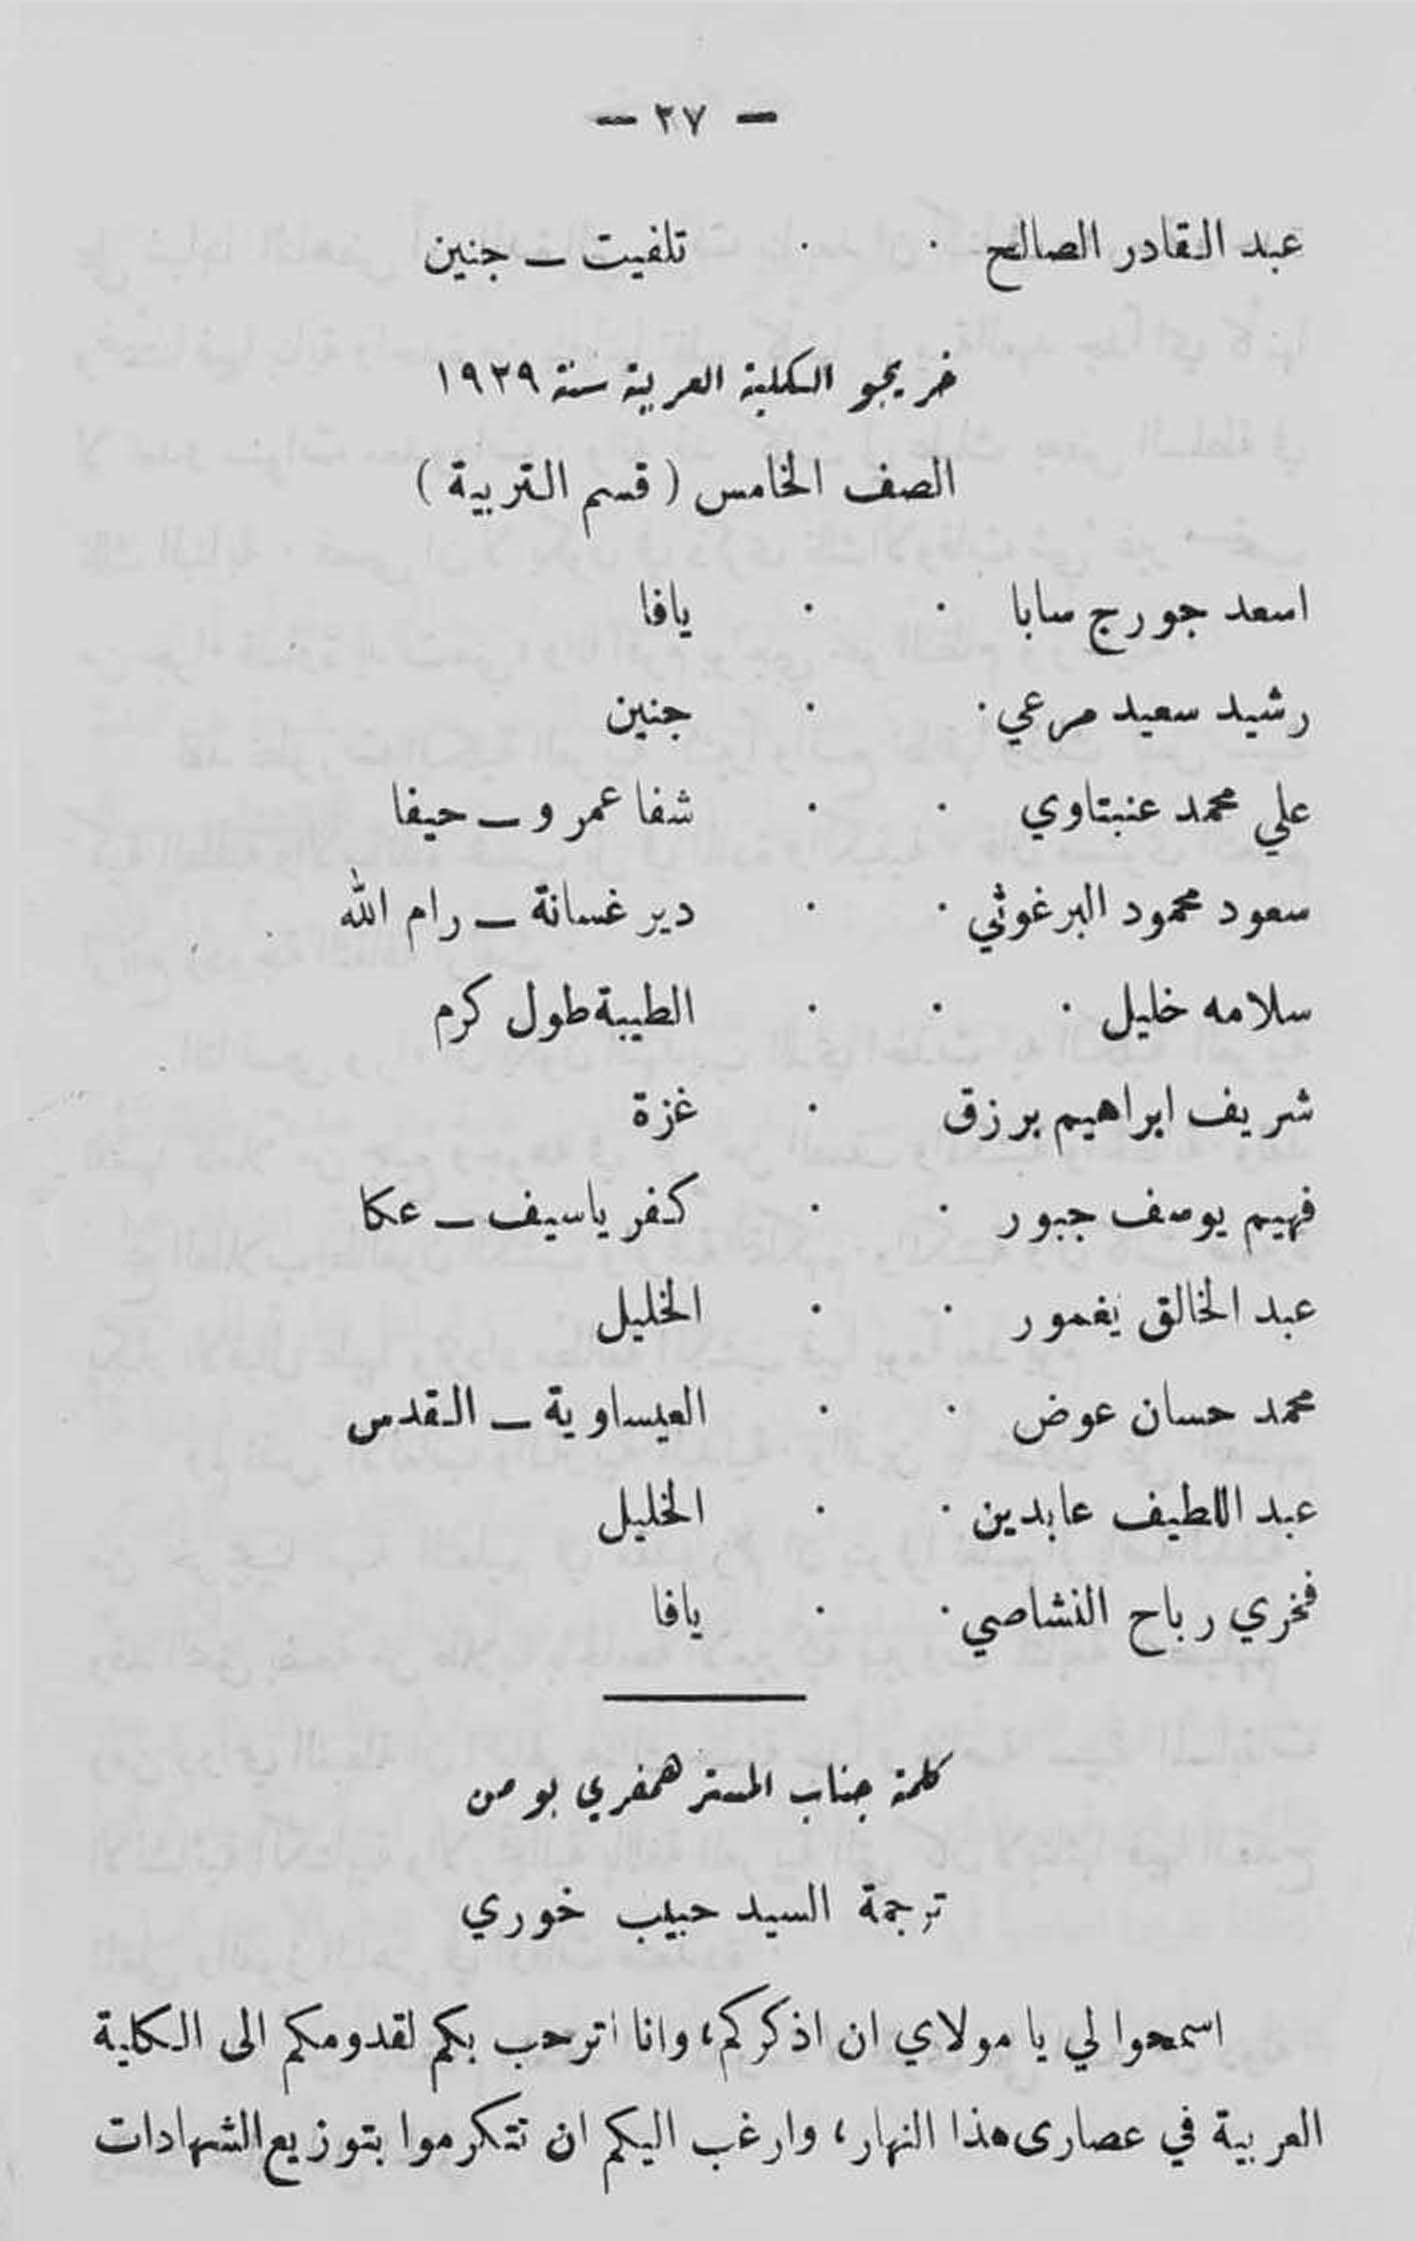 — ٢٧ —
عبد القادر الصالح . . تلفيت – جنين
خريجو الكلية العربية سنة ١٩٢٩
الصف الخامس ( قسم التربية )
اسعد جورج سابا . . يافا
رشيد سعيد مرعي . . جنين
علي محمد عنبتاوي . . شفا عمرو – حيفا
سعود محمود البرغوثي . . دير غسانة – رام الله
سلامه خليل . . . الطيبة طول كرم
شريف ابراهيم برزق . غزة
فهيم يوسف جبور . . كفر ياسيف – عكا
عبد الخالق يغمور . . الخليل
محمد حسان عوض . . العيساوية – القدس
عبد اللطيف عابدين . . الخليل
فخري رباح النشاصي . . يافا
كلمة جناب المستر همفري بومن
ترجمة السيد حبيب خوري
اسمحوا لي يا مولاي ان اذكركم، وانا اترحب بكم لقدومكم الى الكلية
العربية في عصارى هذا النهار، وارغب اليكم ان تتكرموا بتوزيع الشهادات